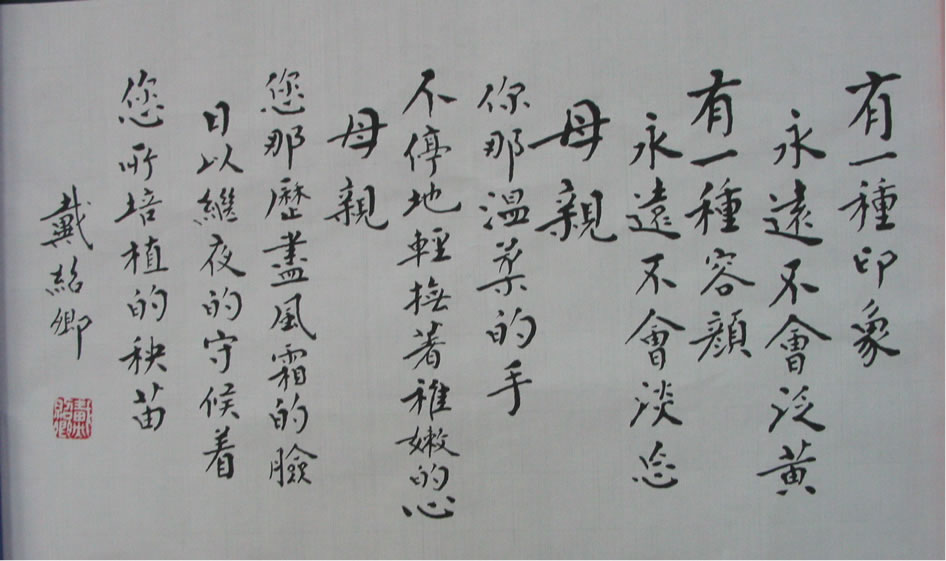 有一種印象
永遠不會泛黃
有一種容顏
永遠不會淡忘
母親
你那溫柔的手
不停地輕撫著稚嫩的心
母親
您那歷盡風霜的臉
日以繼夜的守候着
您所培植的秧苗
戴紹卿
戴紹卿